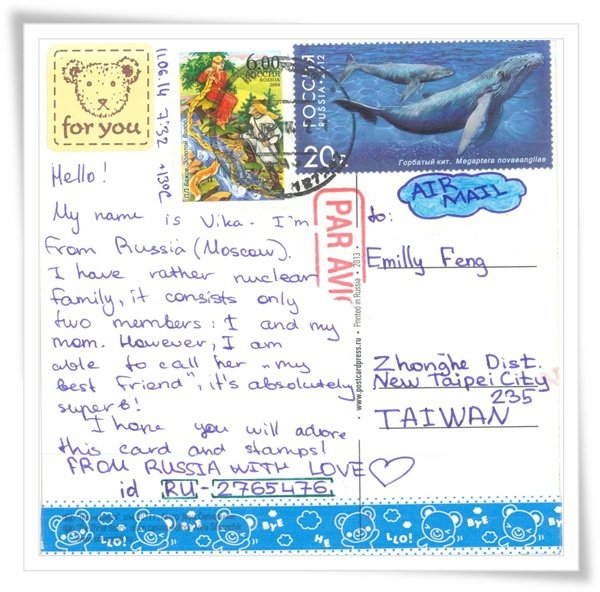 for you
11.06.14 7:32 +13°C
6.00
РОССИЯ
ROSSIA
2004
П.П. Бажов. Золотой Волос
РОССИЯ
RUSSIA 2012
20
Горбатый кит. Megaptera novaeangliae
AIR
MAIL
PAR AVIO
Hello!
My name is Vika. I'm
from Russia (Moscow).
I have rather nuclear
family, it consists only
two members: I and my
mom. However, I am
able to call her „my
best friend", it's absolutely
superb!
I hope you will adore
this card and stamps!
FROM RUSSIA WITH LOVE
id RU-2765476
www.postcardpress.ru • Printed in Russia • 2013 •
to:
Emilly Feng
Zhonghe Dist.
New Taipei City
235
TAIWAN
LLO!
BYE
HE
LLO!
BYE